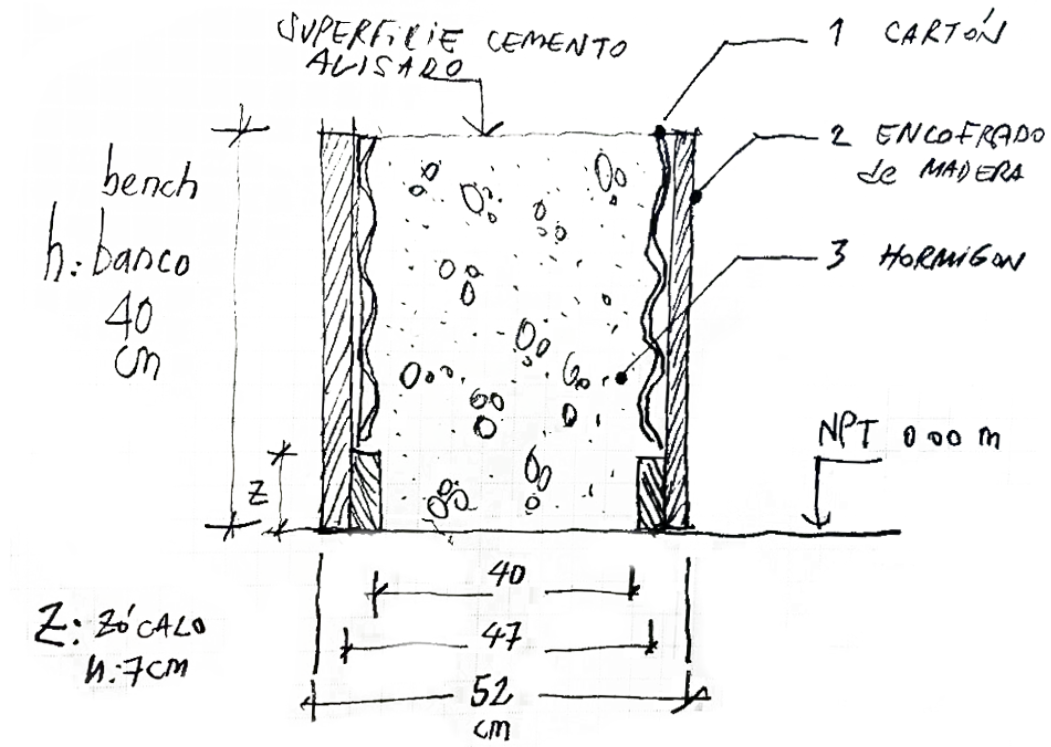 SUPERFICIE CEMENTO
ALISADO
1 CARTÓN
2 ENCOFRADO
de MADERA
3 HORMIGON
bench
h: banco
40
cm
NPT 0.00 m
Z
40
47
52
cm
Z: ZÓCALO
h: 7cm